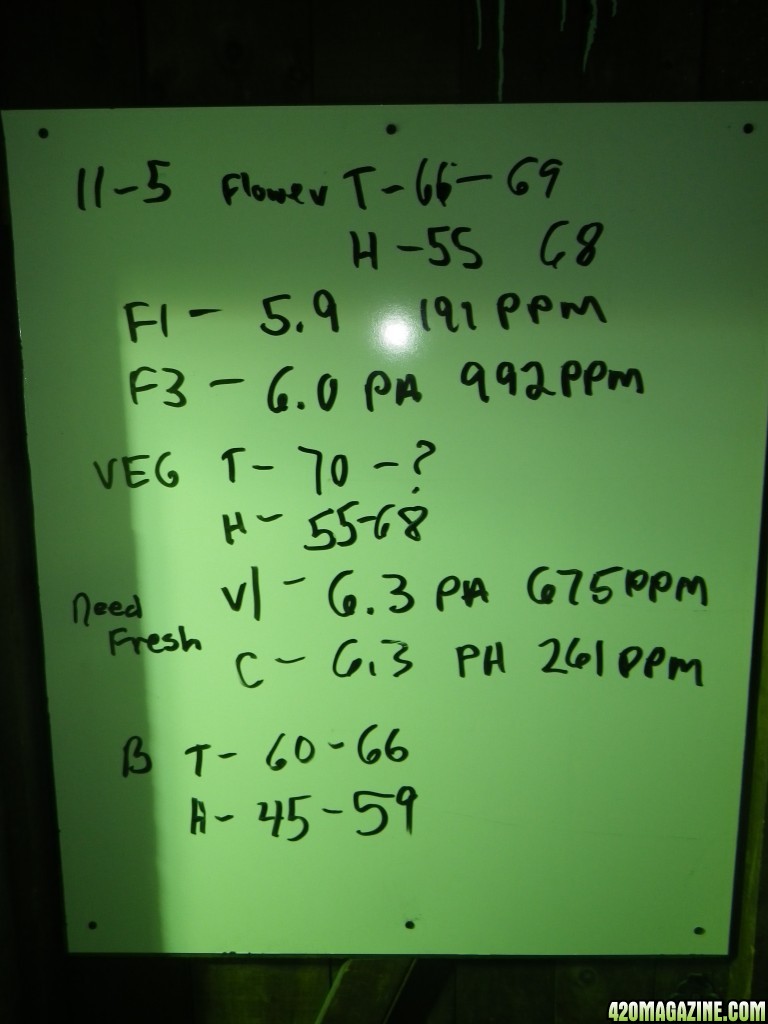 11-5 Flower T-66-69
H-55 68
F1- 5.9 191 PPM
F3- 6.0 PH 992PPM
VEG T- 70 -?
H- 55-68
Need Fresh
V1- 6.3 PH 675PPM
C- 6.3 PH 261PPM
B T- 60-66
H- 45-59
420MAGAZINE.COM